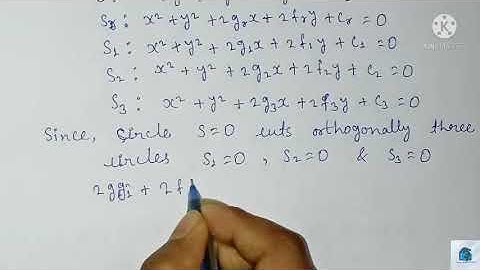 S_r : x² + y² + 2g_r x + 2f_r y + c_r = 0
S₁ : x² + y² + 2g₁x + 2f₁y + c₁ = 0
S₂ : x² + y² + 2g₂x + 2f₂y + c₂ = 0
S₃ : x² + y² + 2g₃x + 2f₃y + c₃ = 0
Since, circle S=0 cuts orthogonally three
circles S₁=0 , S₂=0 & S₃=0
2gg₁ + 2f